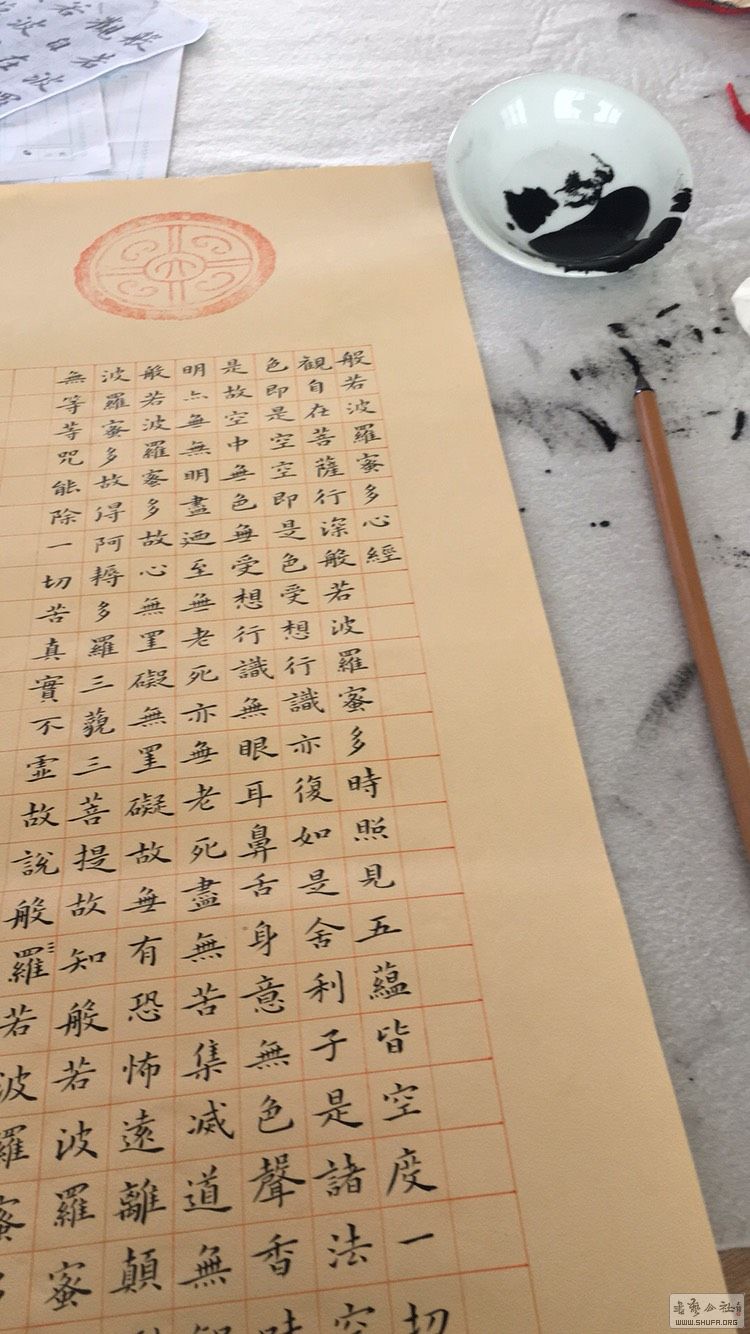 般若波羅蜜多心經
觀自在菩薩行深般若波羅蜜多時照見五蘊皆空度一切
色即是空空即是色受想行識亦復如是舍利子是諸法空
是故空中無色無受想行識無眼耳鼻舌身意無色聲香味
明亦無無明盡迺至無老死亦無老死盡無苦集滅道無智
般若波羅蜜多故心無罣礙無罣礙故無有恐怖遠離顛
波羅蜜多故得阿耨多羅三藐三菩提故知般若波羅蜜
無等等咒能除一切苦真實不虛故說般羅若波羅蜜多
般若波
觀自在
書藝公社
WWW.SHUFA.ORG